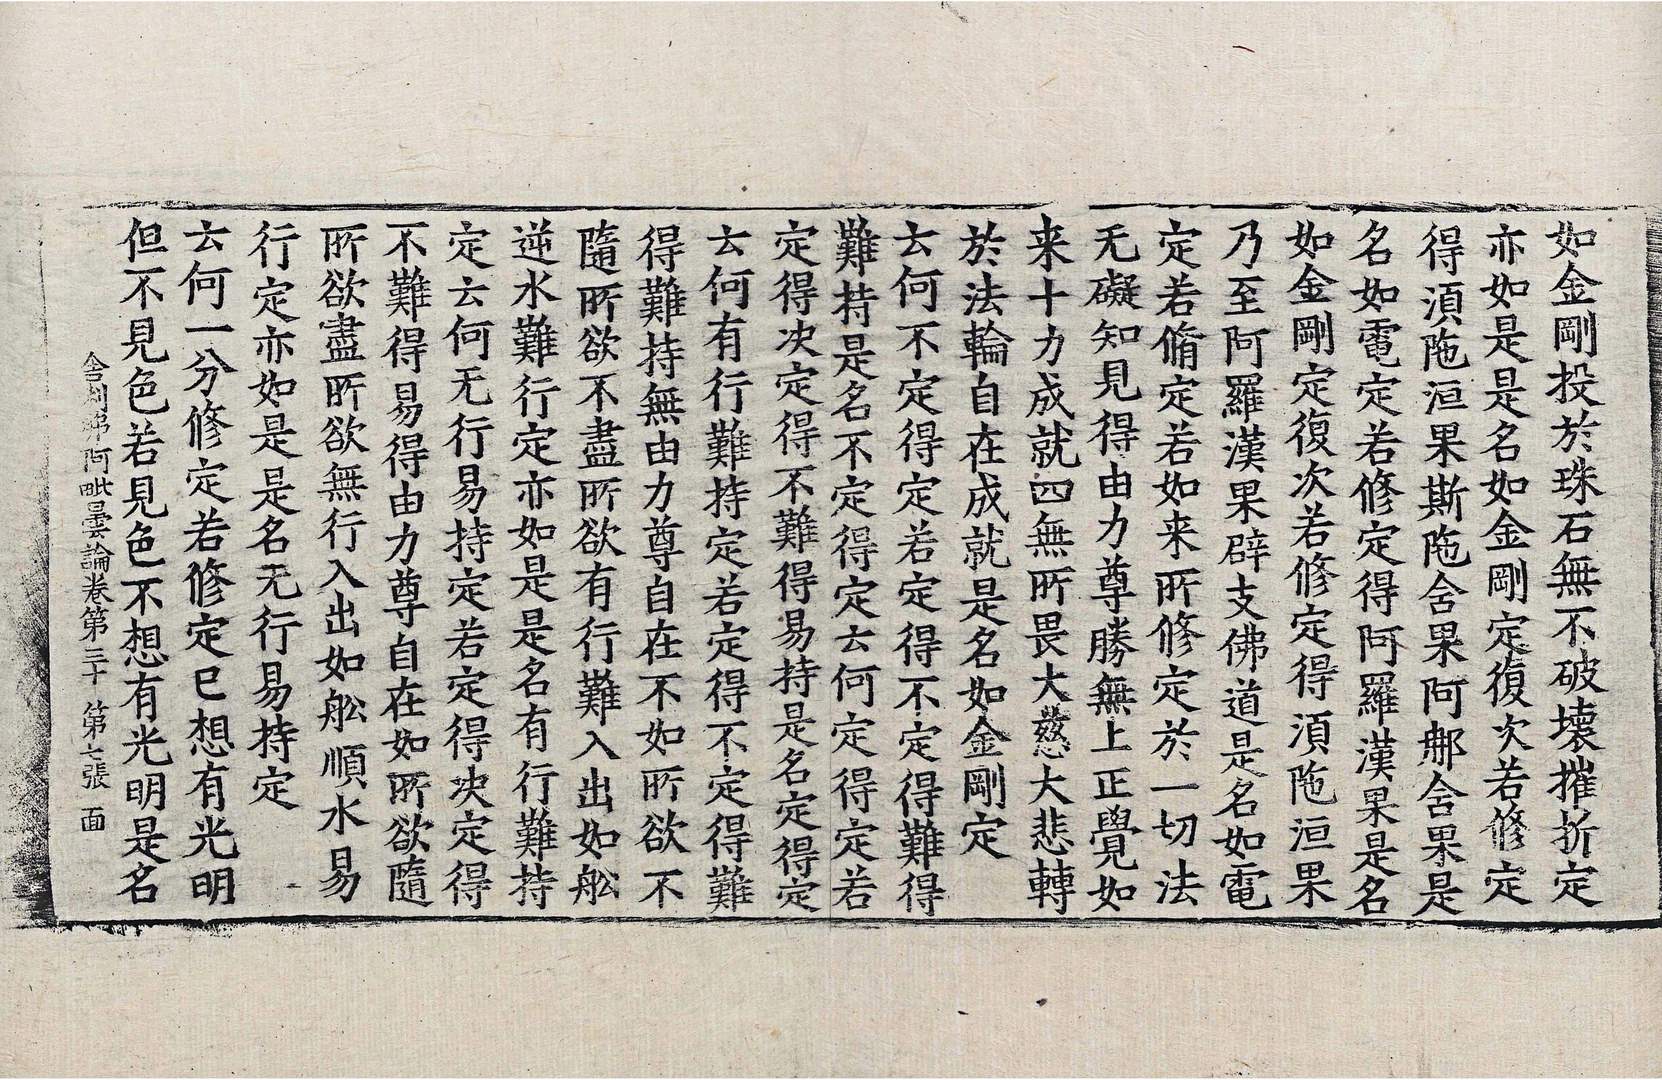 如金剛投於珠石無不破壞摧折定
亦如是是名如金剛定復次若修定
得湏陁洹果斯陁含果阿那含果是
名如電定若修定得阿羅漢果是名
如金剛定復次若修定得湏陁洹果
乃至阿羅漢果辟支佛道是名如電
定若脩定若如来所修定於一切法
无礙知見得由力尊勝無上正覺如
来十力成就四無所畏大慈大悲轉
於法輪自在成就是名如金剛定
云何不定得定若定得不定得難得
難持是名不定得定云何定得定若
定得决定得不難得易持是名定得定
云何有行難持定若定得不定得難
得難持無由力尊自在不如所欲不
隨所欲不盡所欲有行難入出如舩
逆水難行定亦如是是名有行難持
定云何无行易持定若定得决定得
不難得易得由力尊自在如所欲隨
所欲盡所欲無行入出如舩順水易
行定亦如是是名无行易持定
云何一分修定若修定已想有光明
但不見色若見色不想有光明是名
舍利弗阿毗曇論卷第三十 第七張 面